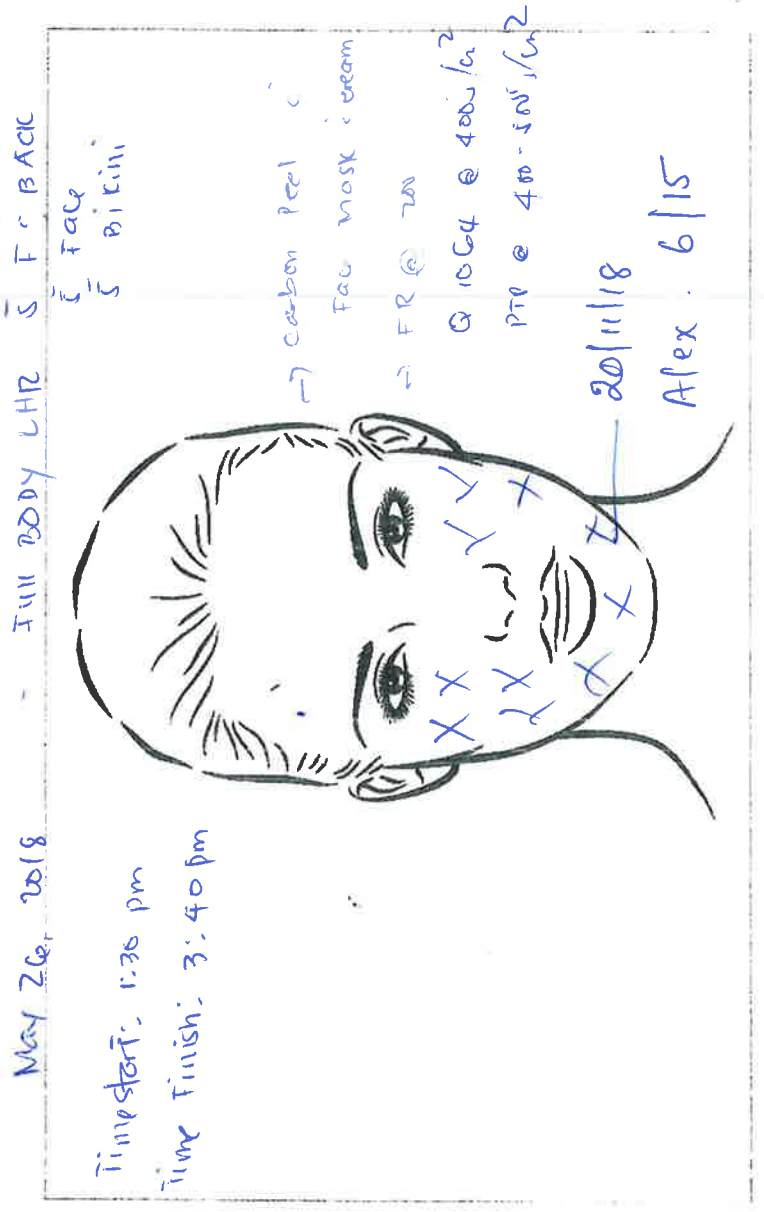 May 26, 2018 - Full BODY LHR S F: BACK
S Face
S Bikini
Time start: 1:30 pm
Time Finish: 3:40 pm
→ carbon Peel c
Fac mask cream
→ FR @ 200
Q 1064 @ 400J/cm2
PTP @ 400-500J/cm2
20/11/18
Alex. 6/15